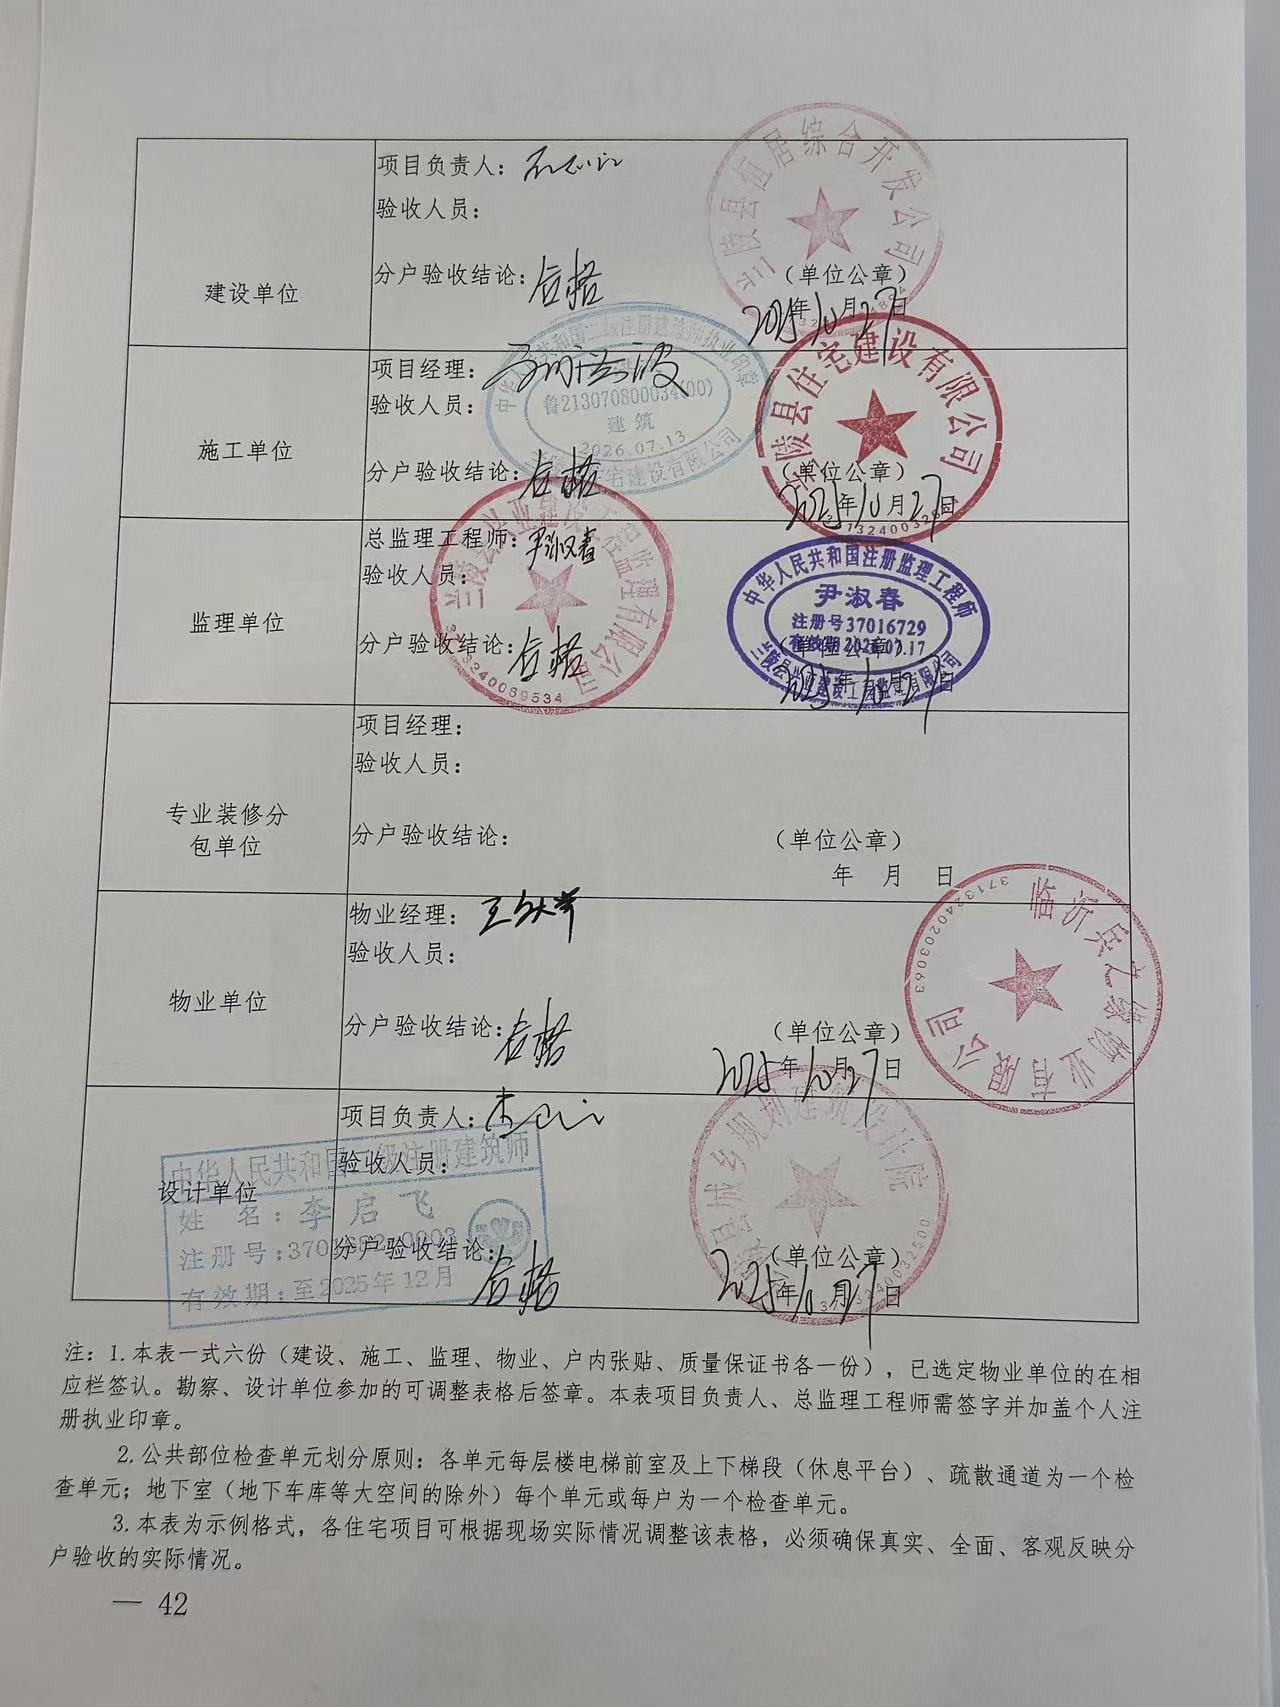 建设单位
项目负责人：
验收人员：
分户验收结论：合格
（单位公章）
2025年10月27日
兰陵县恒居综合开发公司
施工单位
项目经理：
验收人员：
分户验收结论：合格
（单位公章）
2025年10月27日
中华人民共和国二级注册建造师执业印章
鲁213070800034(00)
建筑
2026.07.13
兰陵县住宅建设有限公司
监理单位
总监理工程师：尹淑春
验收人员：
分户验收结论：合格
（单位公章）
2025年10月27日
中华人民共和国注册监理工程师
尹淑春
注册号37016729
有效期
专业装修分
包单位
项目经理：
验收人员：
分户验收结论：
（单位公章）
年 月 日
物业单位
物业经理：
验收人员：
分户验收结论：合格
（单位公章）
2025年10月27日
物业有限公司
3713240203063
设计单位
项目负责人：
验收人员：
分户验收结论：合格
（单位公章）
2025年10月27日
县城乡规划建筑设计院
中华人民共和国 级注册建筑师
姓 名：李启飞
注册号：
有效期：至2025年12月
注：1.本表一式六份（建设、施工、监理、物业、户内张贴、质量保证书各一份），已选定物业单位的在相
应栏签认。勘察、设计单位参加的可调整表格后签章。本表项目负责人、总监理工程师需签字并加盖个人注
册执业印章。
2.公共部位检查单元划分原则：各单元每层楼电梯前室及上下梯段（休息平台）、疏散通道为一个检
查单元；地下室（地下车库等大空间的除外）每个单元或每户为一个检查单元。
3.本表为示例格式，各住宅项目可根据现场实际情况调整该表格，必须确保真实、全面、客观反映分
户验收的实际情况。
— 42